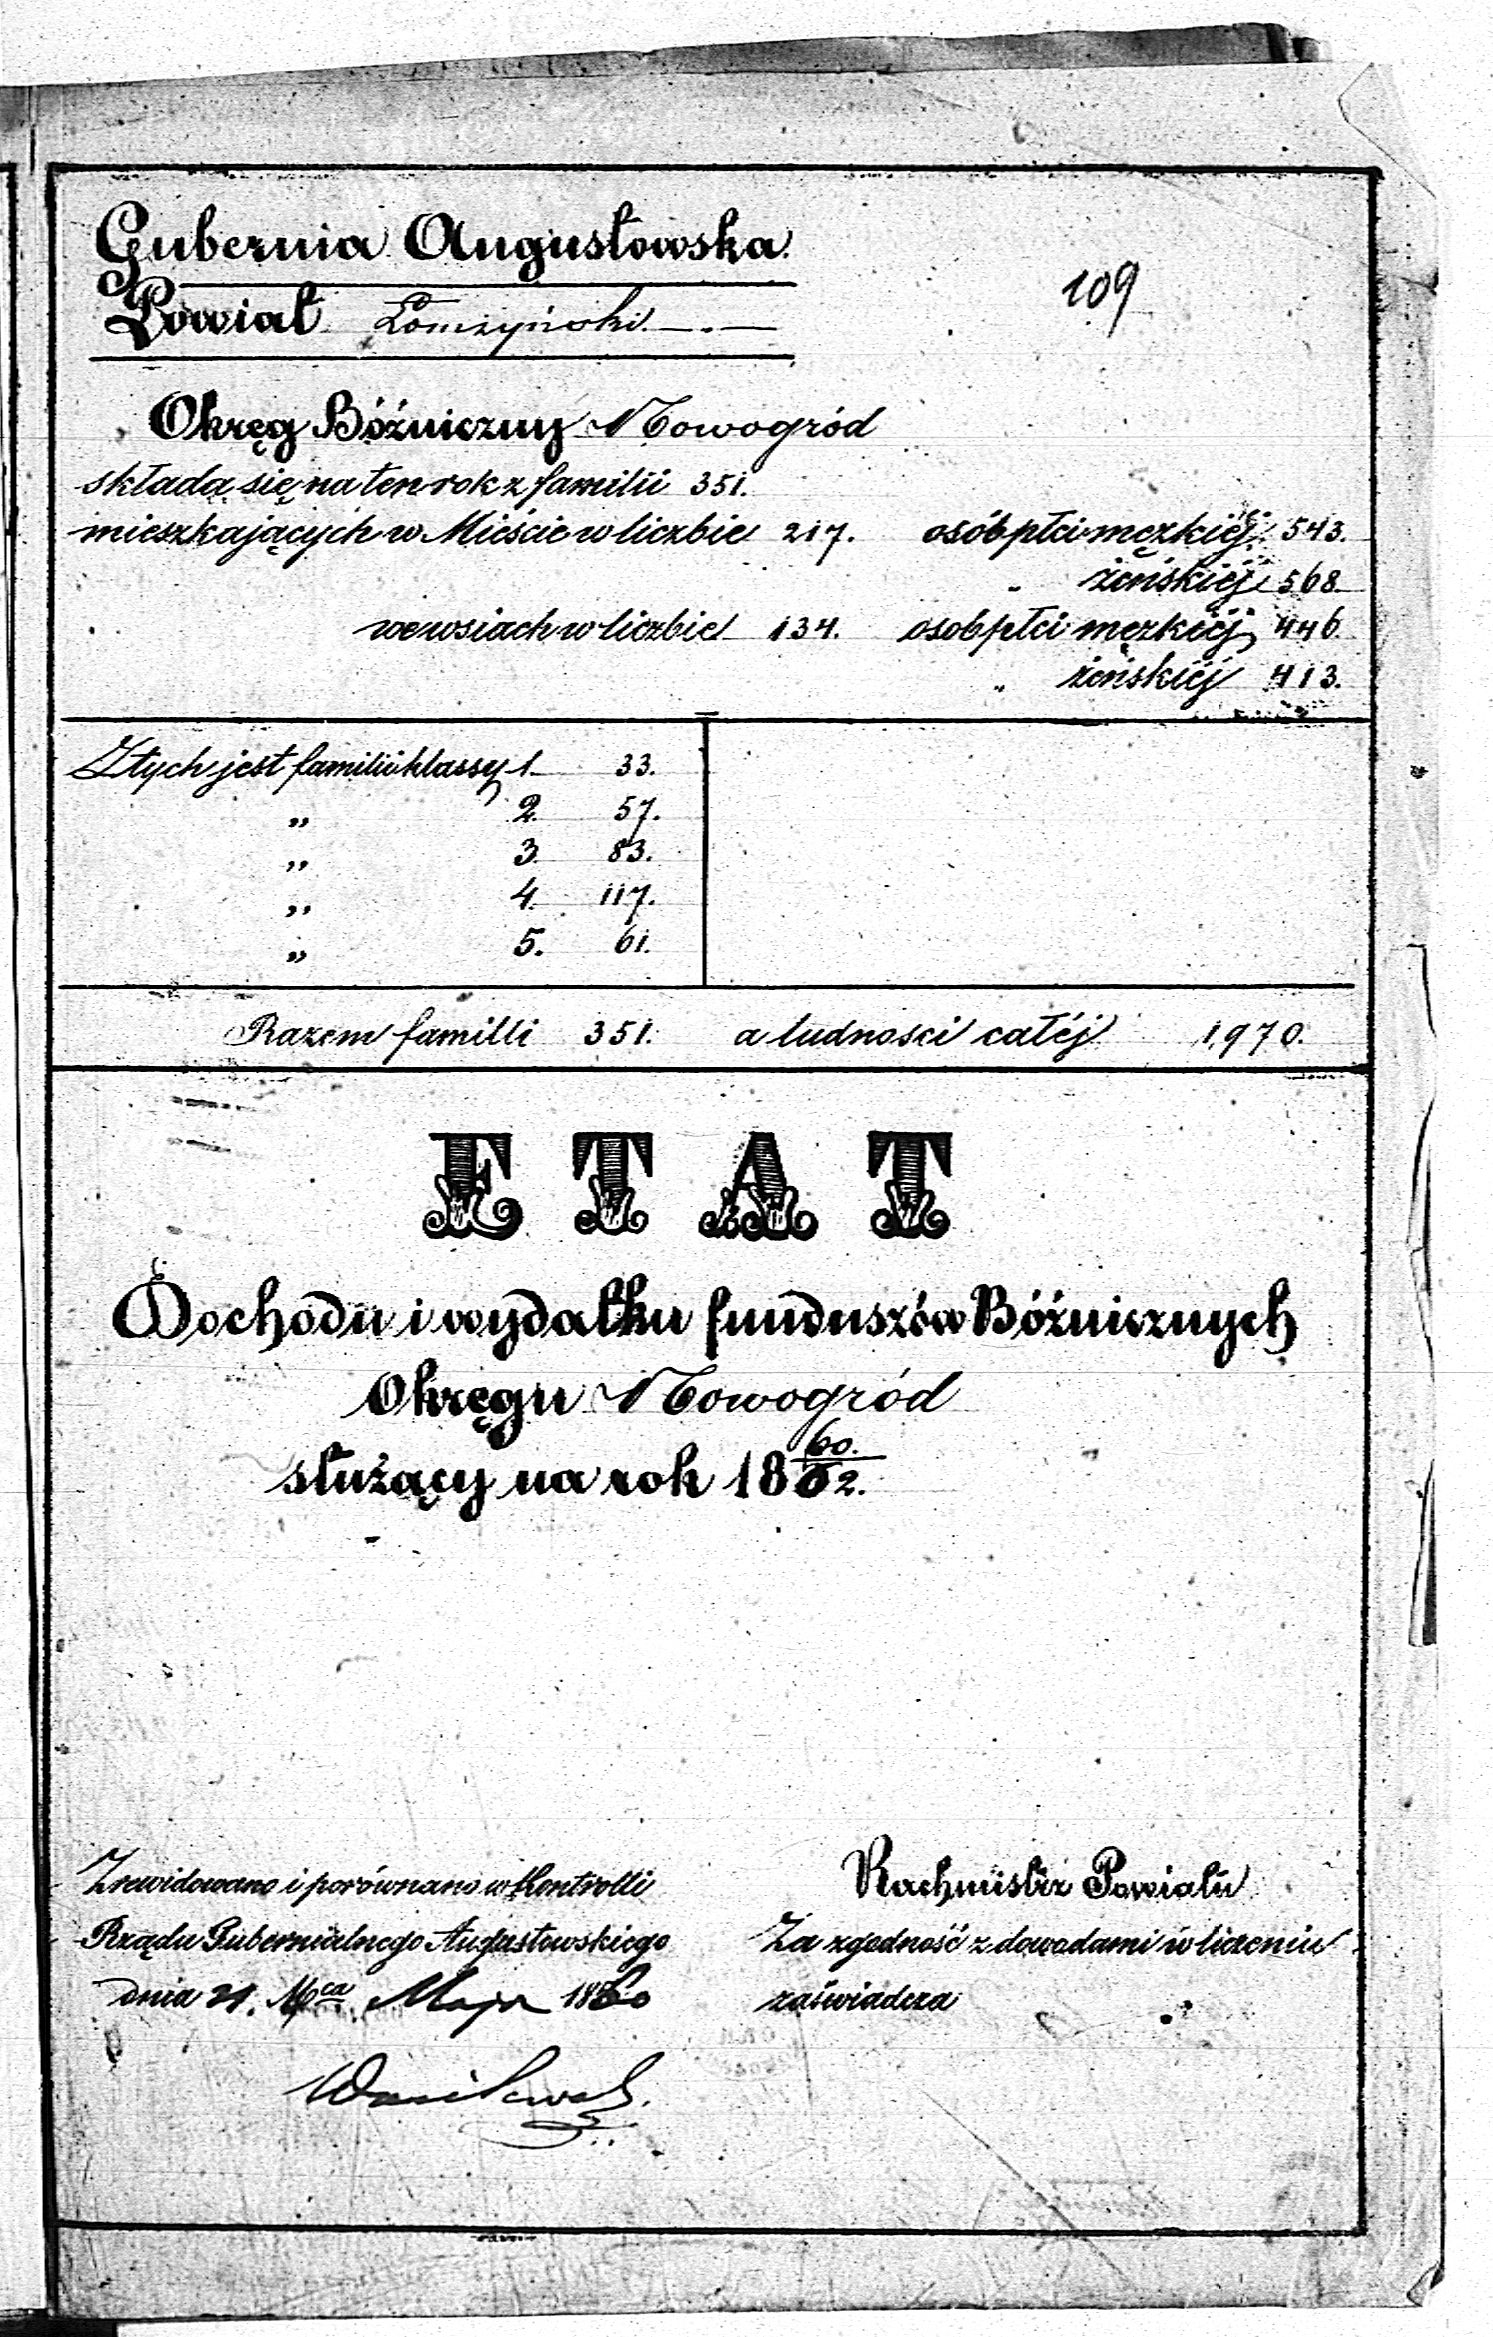 Gubernia Augustowska
109
Powiat Łomzyński
Okręg Bóżniczny Nowogród
składa się na ten rok z familii 351.
mieszkających w Mieście w liczbie 217. osób płci męzkiéj 543.
„ żeńskiéj 568
we wsiach w liczbie 134. osob płci męzkiéj 446
„ żeńskiéj 413.
Z tych jest familii klassy 1. 33.
„ 2. 57.
„ 3. 83.
„ 4. 117.
„ 5. 61.
Razem familli 351. a ludnosci całéj 1,970.
ETAT
Dochodu i wydatku funduszów Bóżnicznych
Okręgu Nowogród
służący na rok 18 60/62.
Zrewidowano i porównano w Kontrolli
Rządu Gubernialnego Augustowskiego
dnia 21. Mca Maja 1860
Rachmistrz Powiatu
Za zgodność z dowodami i w liczeniu
zaświadcza